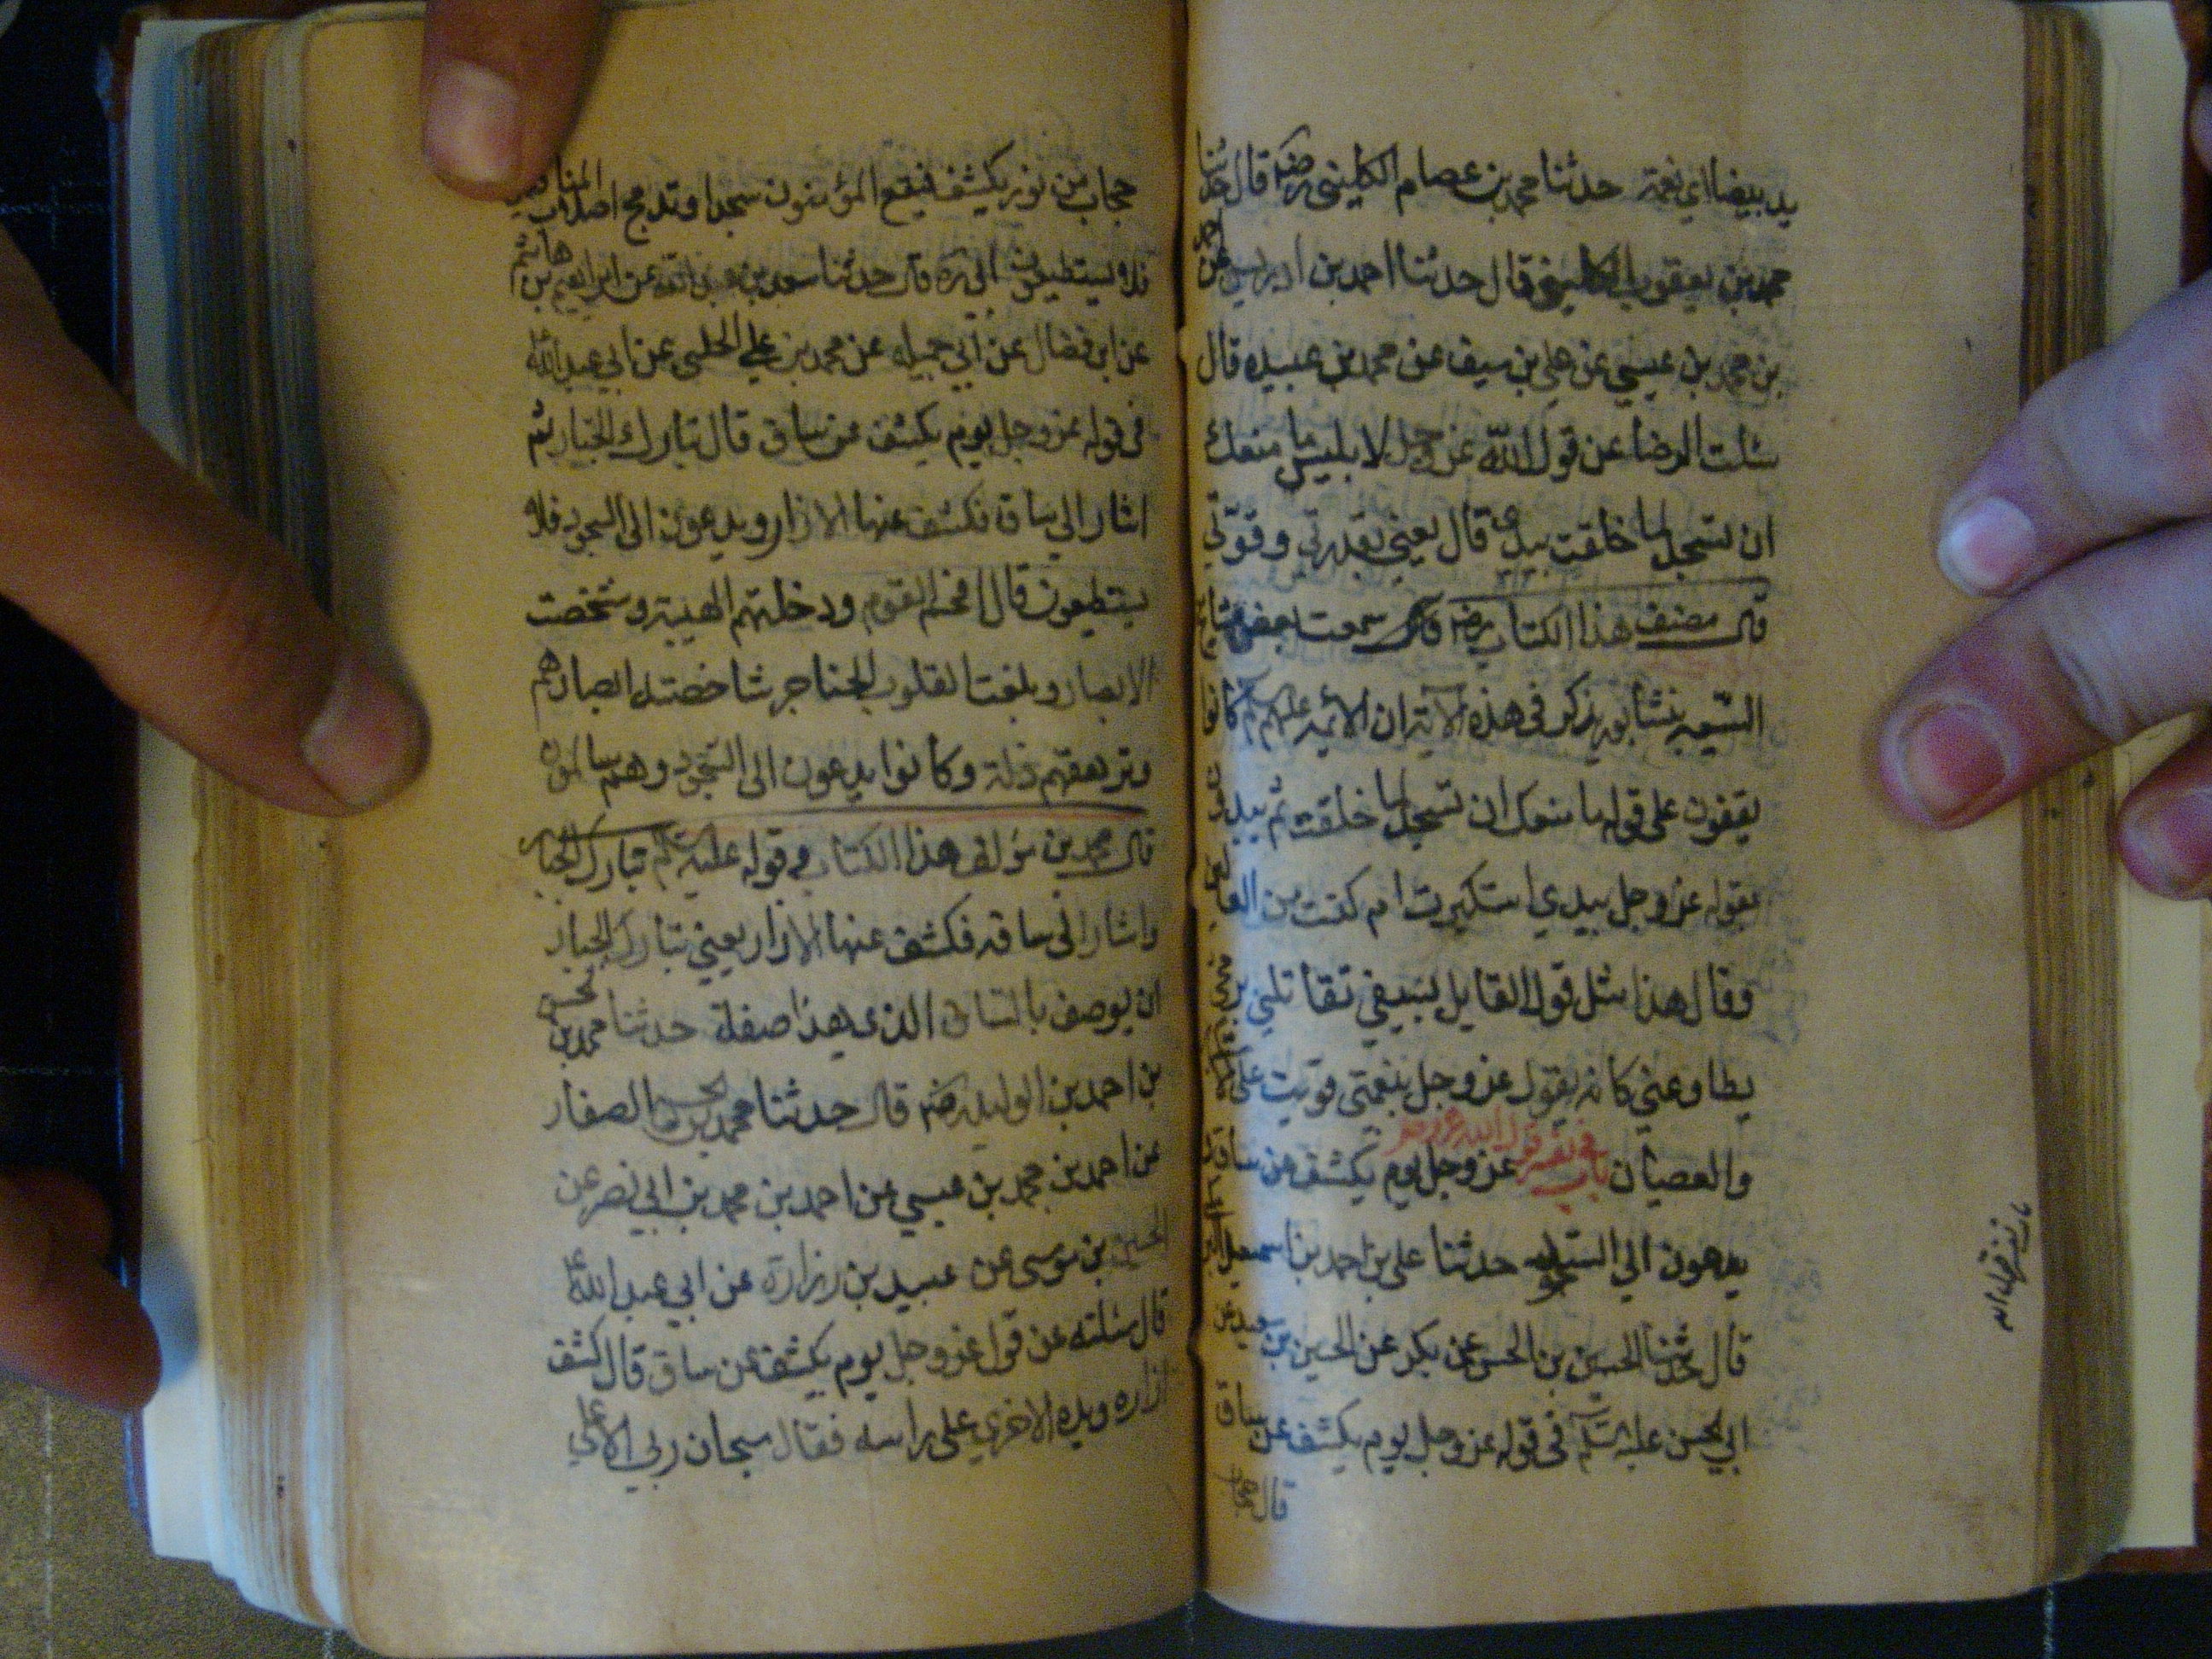 يد بيضا اي نعمة حدثنا محمد بن عصام الكليني رضه قال حدثنا
محمد بن يعقوب الكليني قال حدثنا احمد بن ادريس عن احمد
بن محمد بن عيسي عن علي بن سيف عن محمد بن عبيده قال
سئلت الرضا عن قول الله عز وجل لابليس ما منعك
ان تسجد لما خلقت بيدي قال يعني بقدرتي وقوتي
قال مصنف هذا الكتاب رضه سمعت بعض مشايخ
الشيعه بنشابور يذكر في هذه الآية ان الأئمة عليهم كانوا
يقفون علي قوله ما منعك ان تسجد لما خلقت ثم يبدون
بقوله عز وجل بيدي استكبرت ام كنت من العالين
وقال هذا مثل قول القايل بسيفي تقاتلني وبرمحي
يطاوعني كانه يقول عز وجل بنعمتي قويت علي
والعصيان باب في تفسير قول الله عز وجل عز وجل يوم يكشف عن ساق
يدعون الي السجود حدثنا علي بن احمد بن
قال حدثنا الحسين بن الحسن عن بكر عن الحسين بن سعيد عن
ابي الحسن عليه السلم في قوله عز وجل يوم يكشف عن ساق
قال
حجاب من نور يكشف فيقع المؤمنون سجدا وتدمج اصلاب المنافقين
فلا يستطيعون ابي ره قال حدثنا سعد بن عبد الله عن ابراهيم بن هاشم
عن ابن فضال عن ابي جميله عن محمد بن علي الحلبي عن ابي عبد الله
في قوله عز وجل يوم يكشف عن ساق قال تبارك الجبار ثم
اشار الي ساقه فكشف عنها الازار ويدعون الي السجود فلا
يستطيعون قال افحم القوم ودخلتهم الهيبة وشخصت
الابصار وبلغت القلوب الحناجر شاخصة ابصارهم
وترهقهم ذلة وكانوا يدعون الي السجود وهم سالمون
قال محمد بن مؤلف هذا الكتاب وقوله عليه السلم تبارك الجبار
واشار الي ساقه فكشف عنها الازار يعني تبارك الجبار
ان يوصف بالساق الذي هذا صفة حدثنا محمد بن الحسن
بن احمد بن الوليد رضه قال حدثنا محمد بن الحسن الصفار
عن احمد بن محمد بن عيسي عن احمد بن محمد بن ابي نصر عن
الحسين بن موسي عن عبيد بن زرارة عن ابي عبد الله ع
قال سئلته عن قول عز وجل يوم يكشف عن ساق قال كشف
ازاره ويده الاخري علي راسه فقال سبحان ربي الاعلي